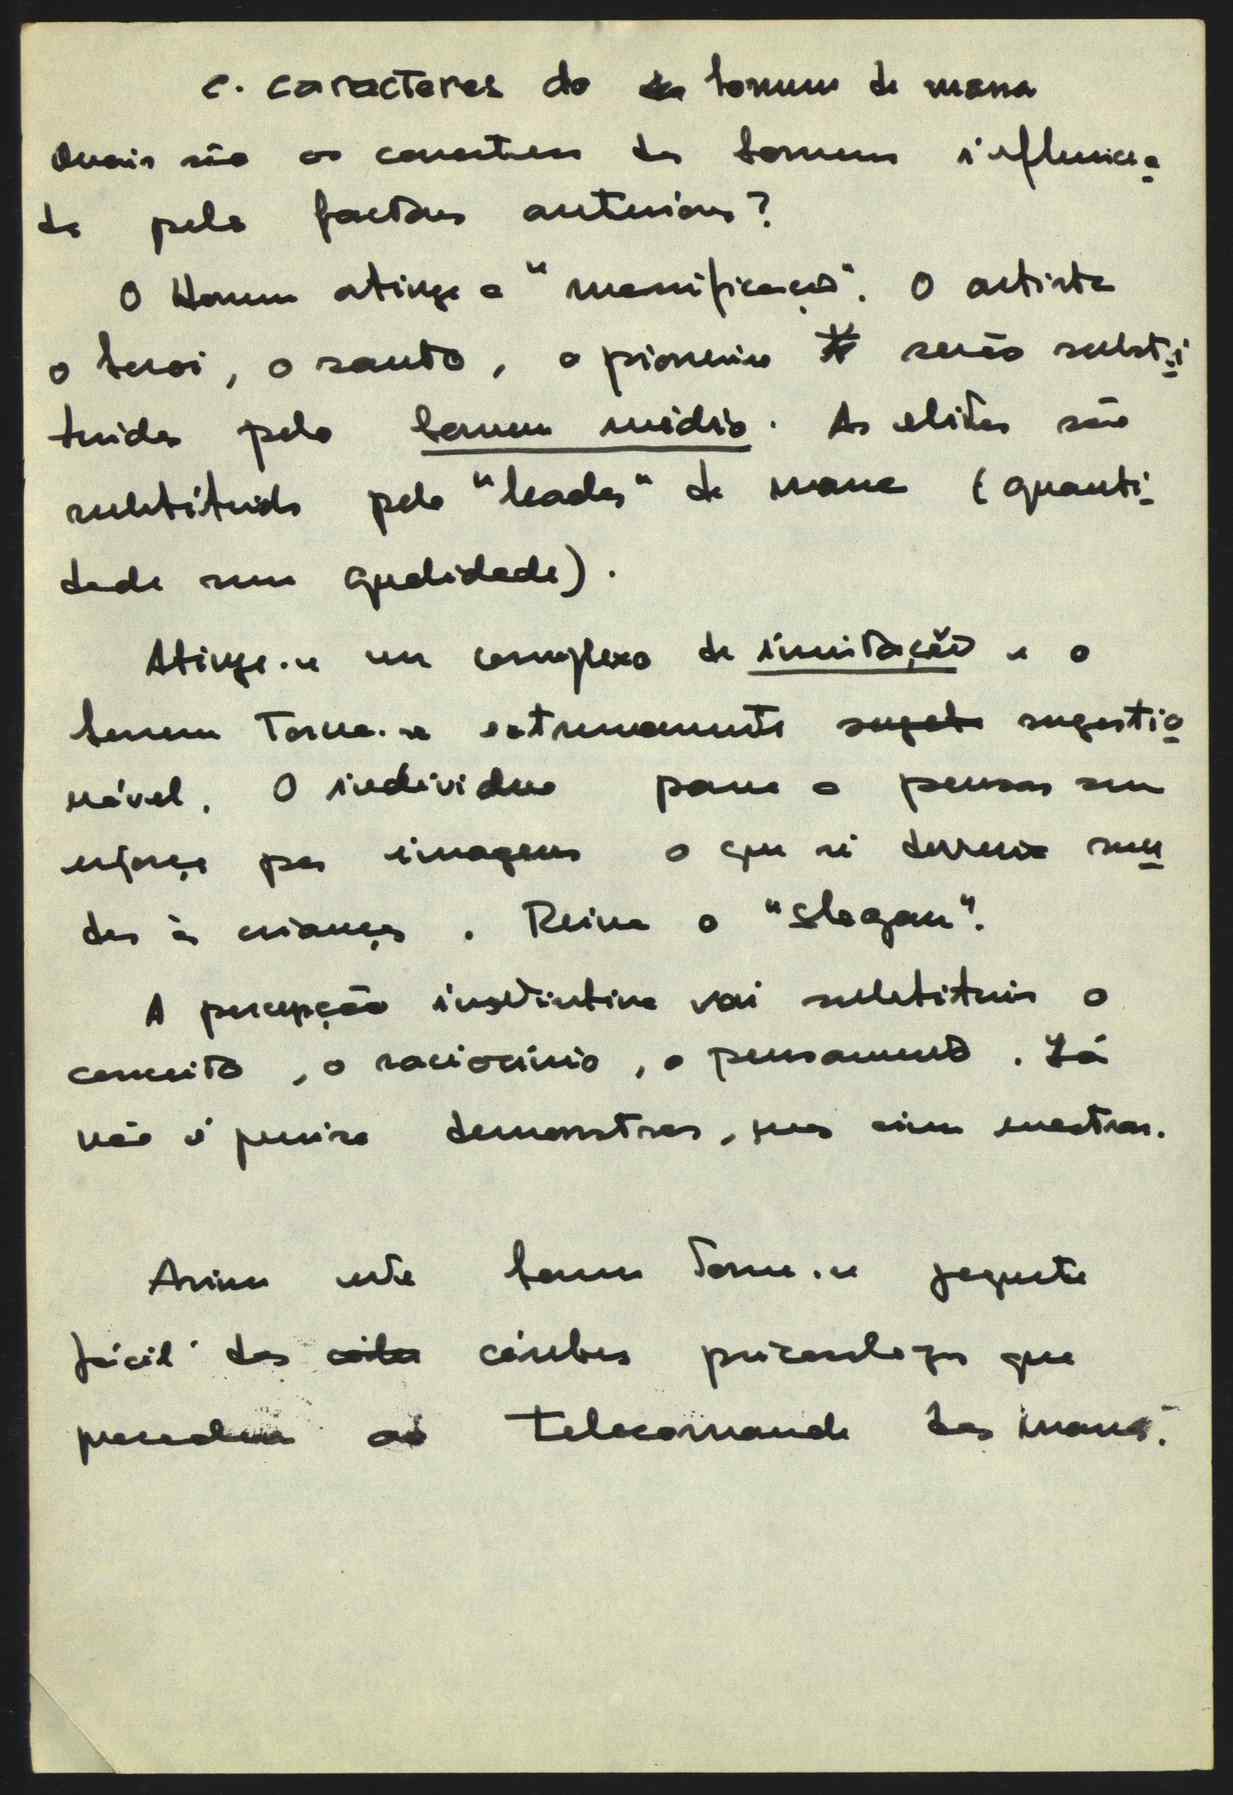 c. caracteres do homem de massa
Quais são os caracteres do homem influencia-
do pelos factores anteriores?
O Homem atinge a "massificação". O artista
o heroi, o santo, o pioneiro serão substi-
tuidos pelo homem médio. As elites são
substituidas pelo "leader" de massa (quanti-
dade sem qualidade).
Atinge-se um complexo de imitação e o
homem torna-se extremamente sugestio-
nável. O individuo passa a pensar sem
esforço por imagens o que só deveria suce
der às crianças. Reina o "slogan".
A percepção instintiva vai substituir o
conceito, o raciocínio, o pensamento. Já
não é preciso demonstrar, mas sim mostrar.
Assim este homem torna-se joguete
fácil dos célebres psicologos que
procedem ao telecomando das massas.